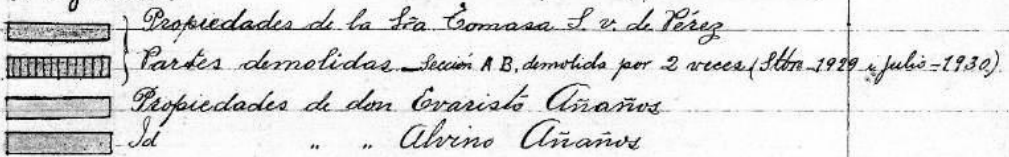 Propiedades de la Sra Tomasa S. v. de Pérez
Partes demolidas - Sección A B, demolida por 2 veces (Stbre-1929 y julio=1930).
Propiedades de don Evaristo Añaños
Id " " Alvino Añaños